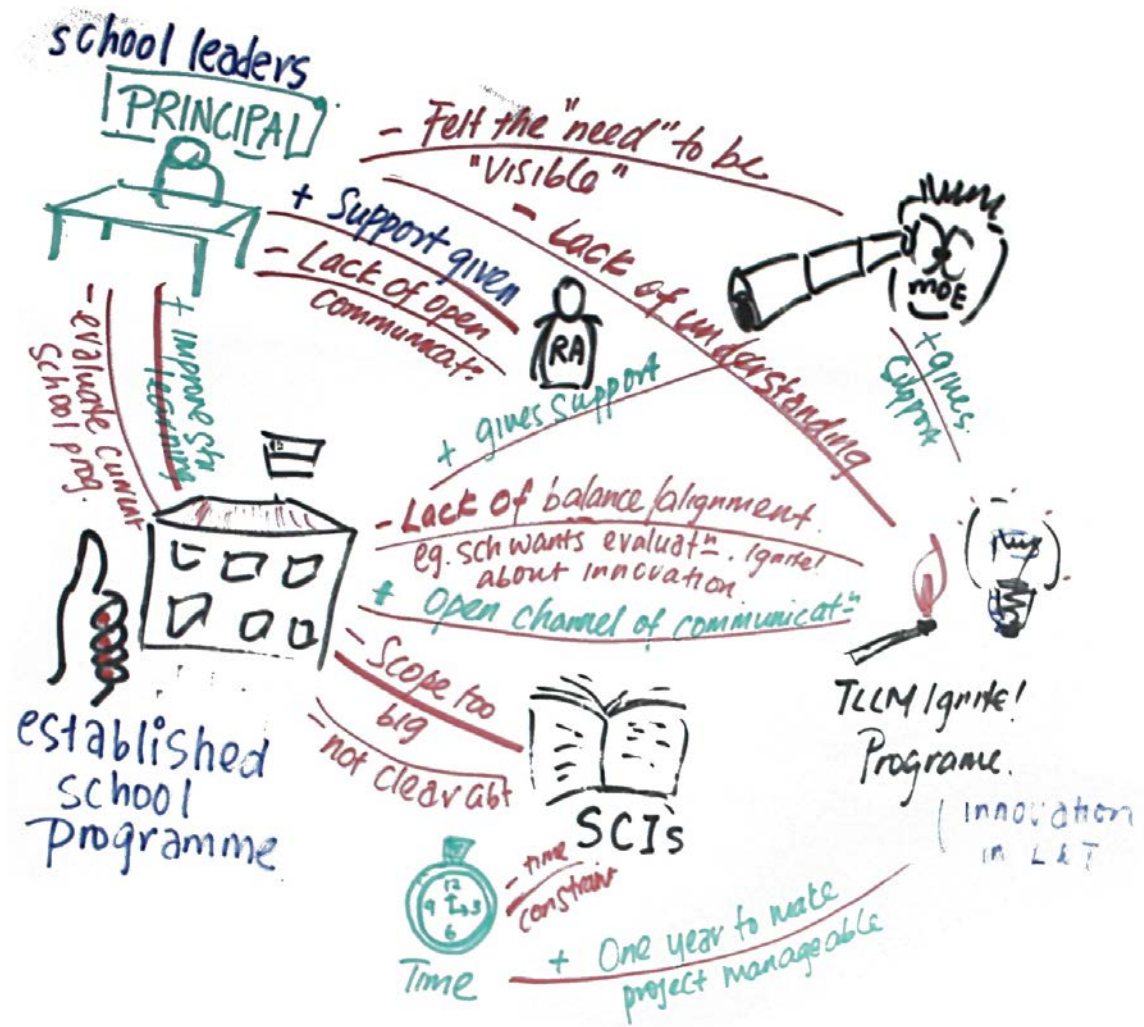 school leaders
PRINCIPAL
- Felt the "need" to be
"visible"
+ Support given
- Lack of open
communicat:
- Lack of understanding
MOE
RA
+ gives
support
+ gives support
- evaluate current
school prog.
+ improve sch
learning
- Lack of balance/alignment.
eg. sch wants evaluatn. Ignite!
about innovation
+ Open channel of communicatn
- Scope too
big
- not clear abt
established
school
programme
SCIs
TLLM Ignite!
Programe.
innovation
in L&T
12
9 3
6
- time
constrain
Time
+ One year to make
project manageable